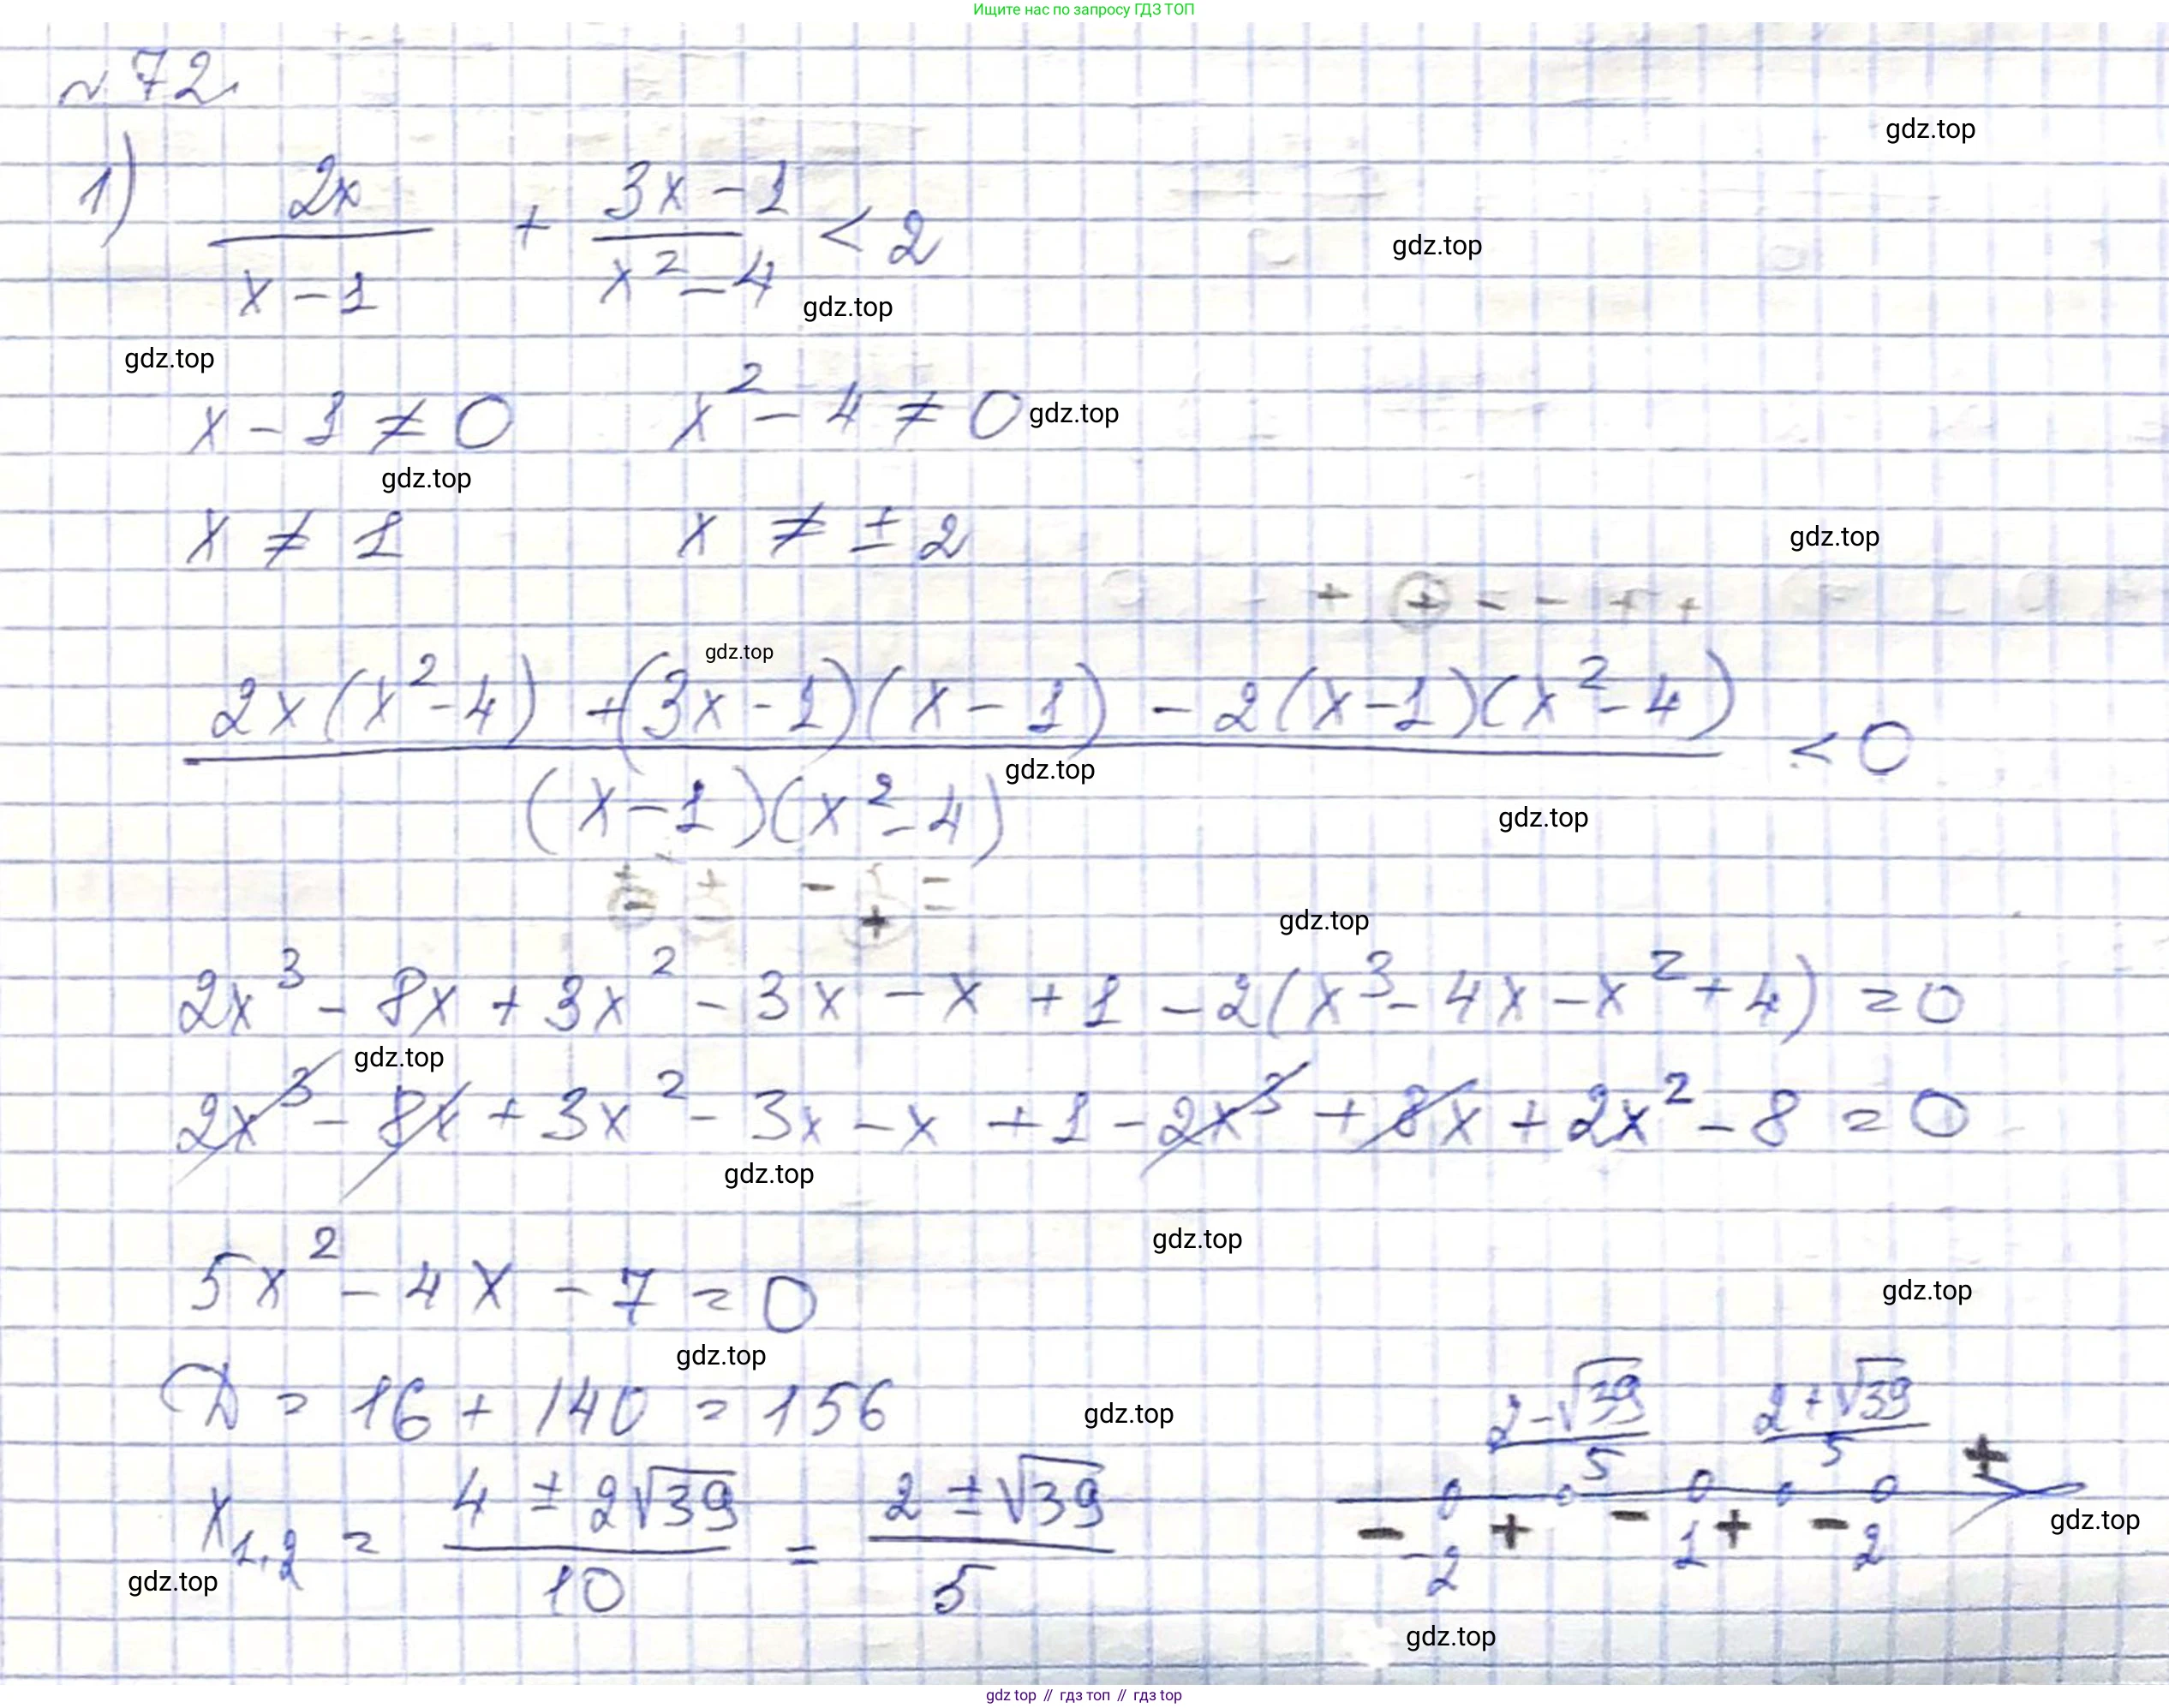 Ищите нас по запросу ГДЗ ТОП
№72.
gdz.top
1) 2x/(x-1) + (3x-1)/(x²-4) < 2
gdz.top
gdz.top
gdz.top
x-1≠0 x²-4≠0
gdz.top
gdz.top
x≠1 x≠±2
gdz.top
+ + - - + +
gdz.top
(2x(x²-4)+(3x-1)(x-1)-2(x-1)(x²-4))/((x-1)(x²-4)) < 0
gdz.top
gdz.top
gdz.top
2x³-8x+3x²-3x-x+1-2(x³-4x-x²+4)=0
gdz.top
2x³-8x+3x²-3x-x+1-2x³+8x+2x²-8=0
gdz.top
gdz.top
5x²-4x-7=0
gdz.top
gdz.top
D=16+140=156
gdz.top
x1,2 = (4±2√39)/10 = (2±√39)/5
(2-√39)/5 (2+√39)/5 +
- + - + -
-2 1 2
gdz.top
gdz.top
gdz.top
gdz top // гдз топ // гдз top